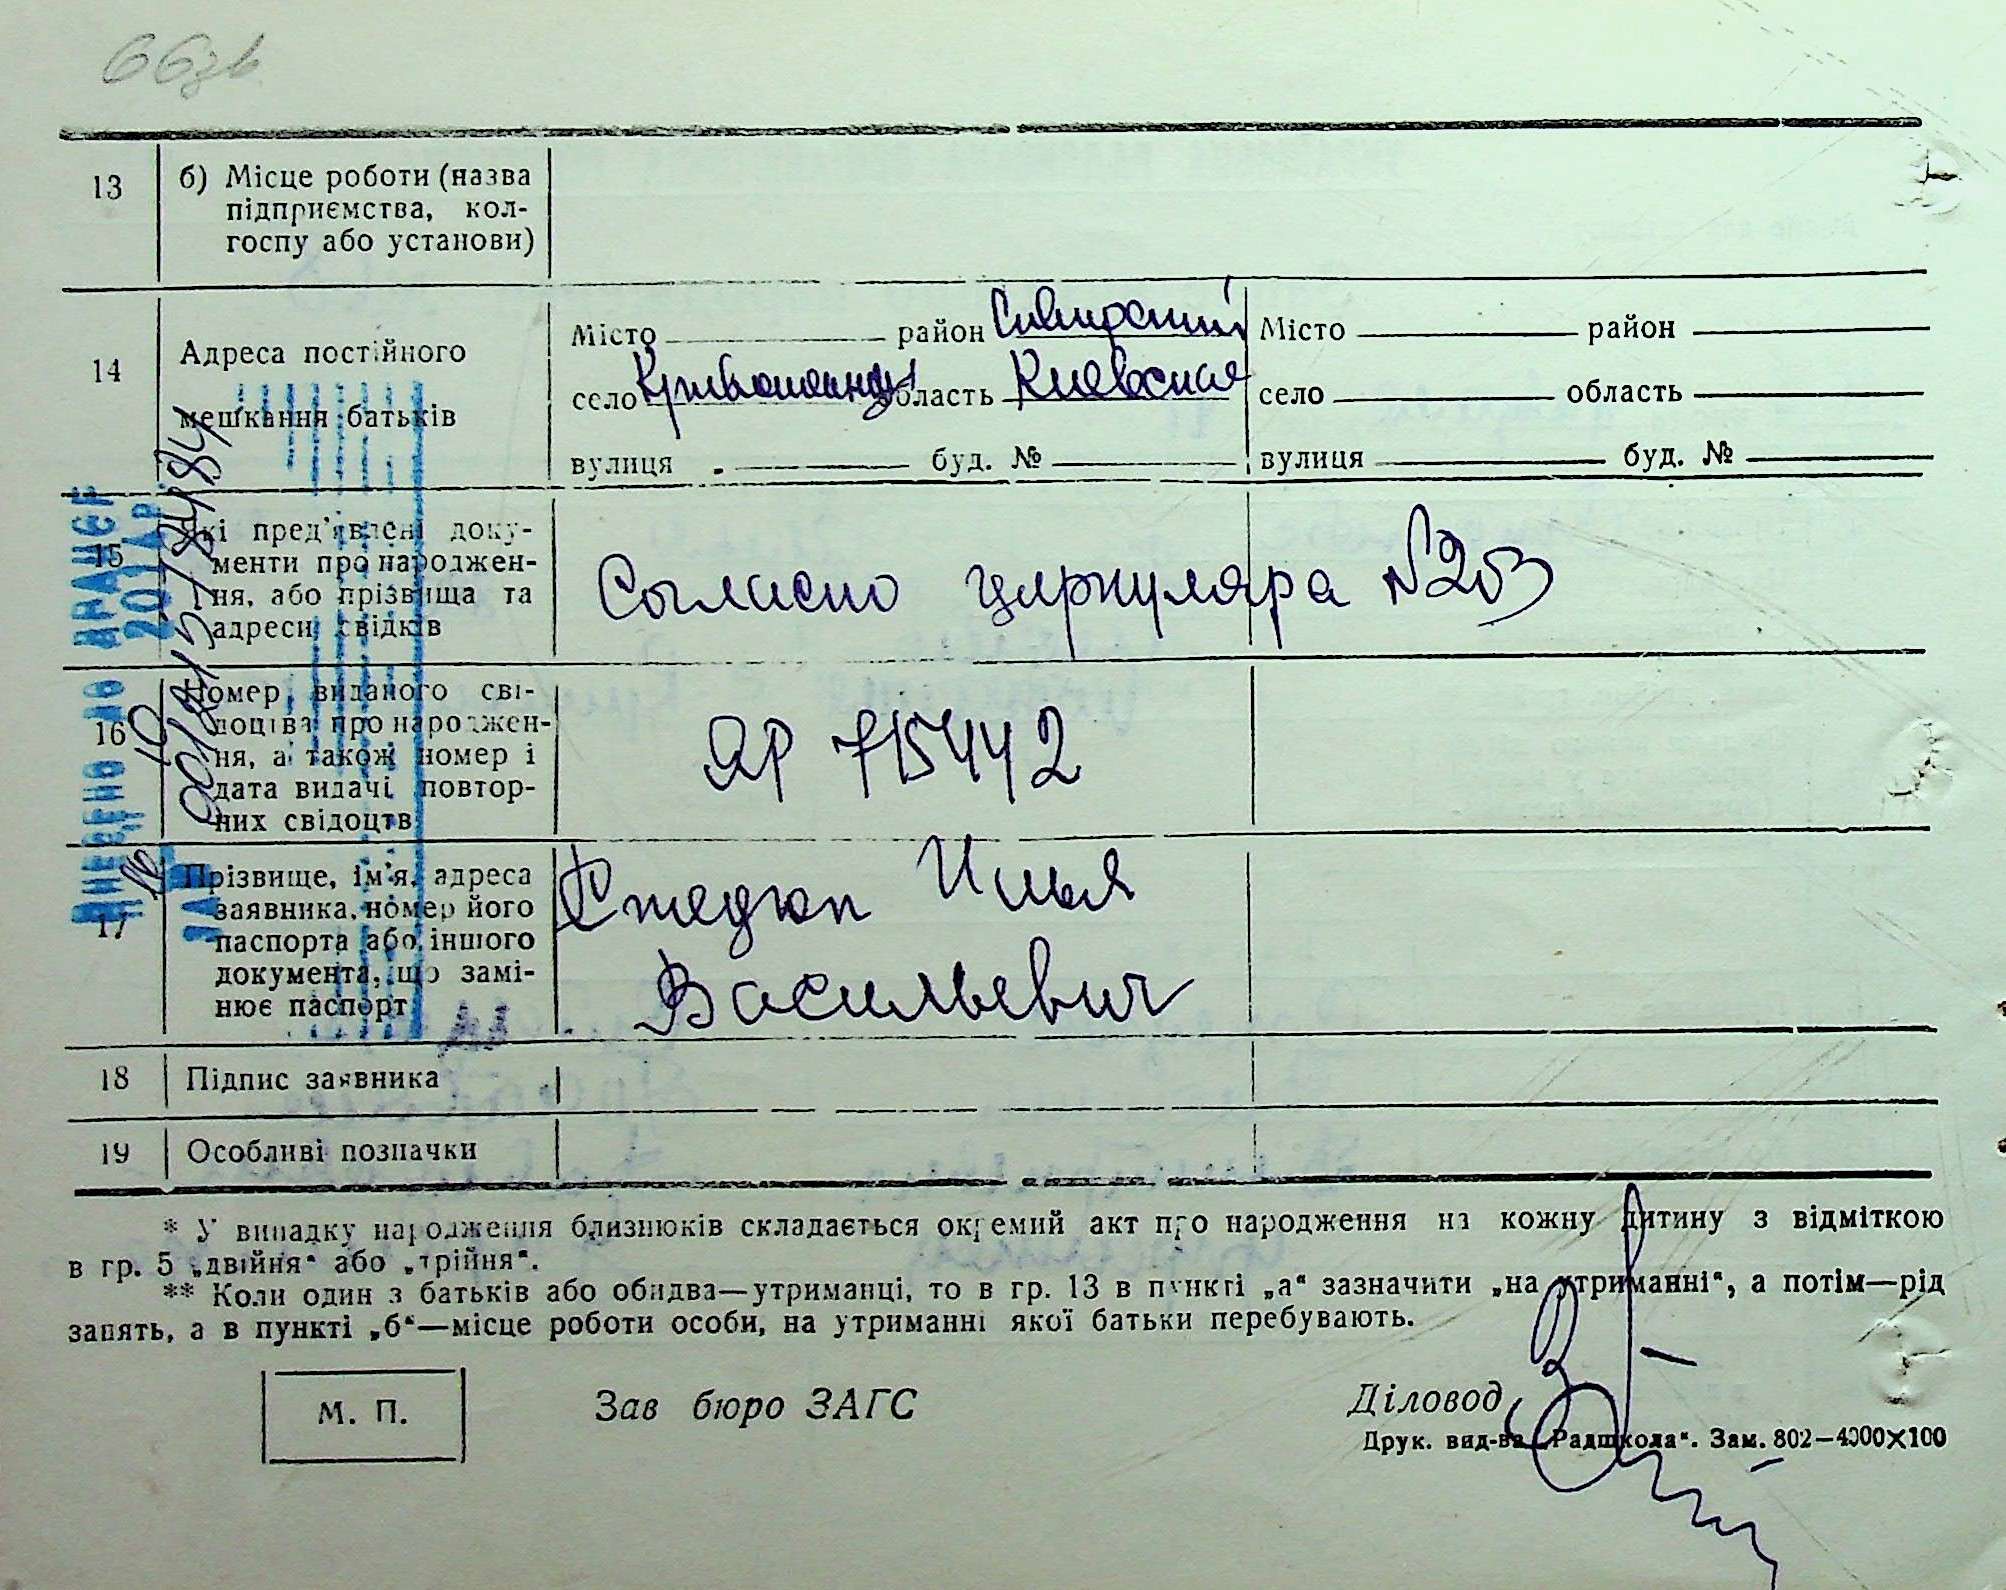 66зв
13 б) Місце роботи (назва
підприємства, кол-
госпу або установи)
14 Адреса постійного
мешкання батьків
Місто район Сквирский Місто район
село область Киевская село область
вулиця буд. № вулиця буд. №
15 Які пред'явлені доку-
менти про народжен-
ня, або прізвища та
адреси свідків
Согласно циркуляра №203
16 Номер виданого сві-
доцтва про народжен-
ня, а також номер і
дата видачі повтор-
них свідоцтв
ЯР 715442
17 Прізвище, ім'я, адреса
заявника, номер його
паспорта або іншого
документа, що замі-
нює паспорт
Илья
Васильевич
18 Підпис заявника
19 Особливі позначки
ВНЕСЕНО ДО ДРАЦСГ
* У випадку народження близнюків складається окремий акт про народження на кожну дитину з відміткою
в гр. 5 „двійня“ або „трійня“.
** Коли один з батьків або обидва—утриманці, то в гр. 13 в пункті „а“ зазначити „на утриманні“, а потім—рід
занять, а в пункті „б“—місце роботи особи, на утриманні якої батьки перебувають.
М. П. Зав бюро ЗАГС Діловод
Друк. вид-ва „Радшкола“. Зам. 802—4000×100